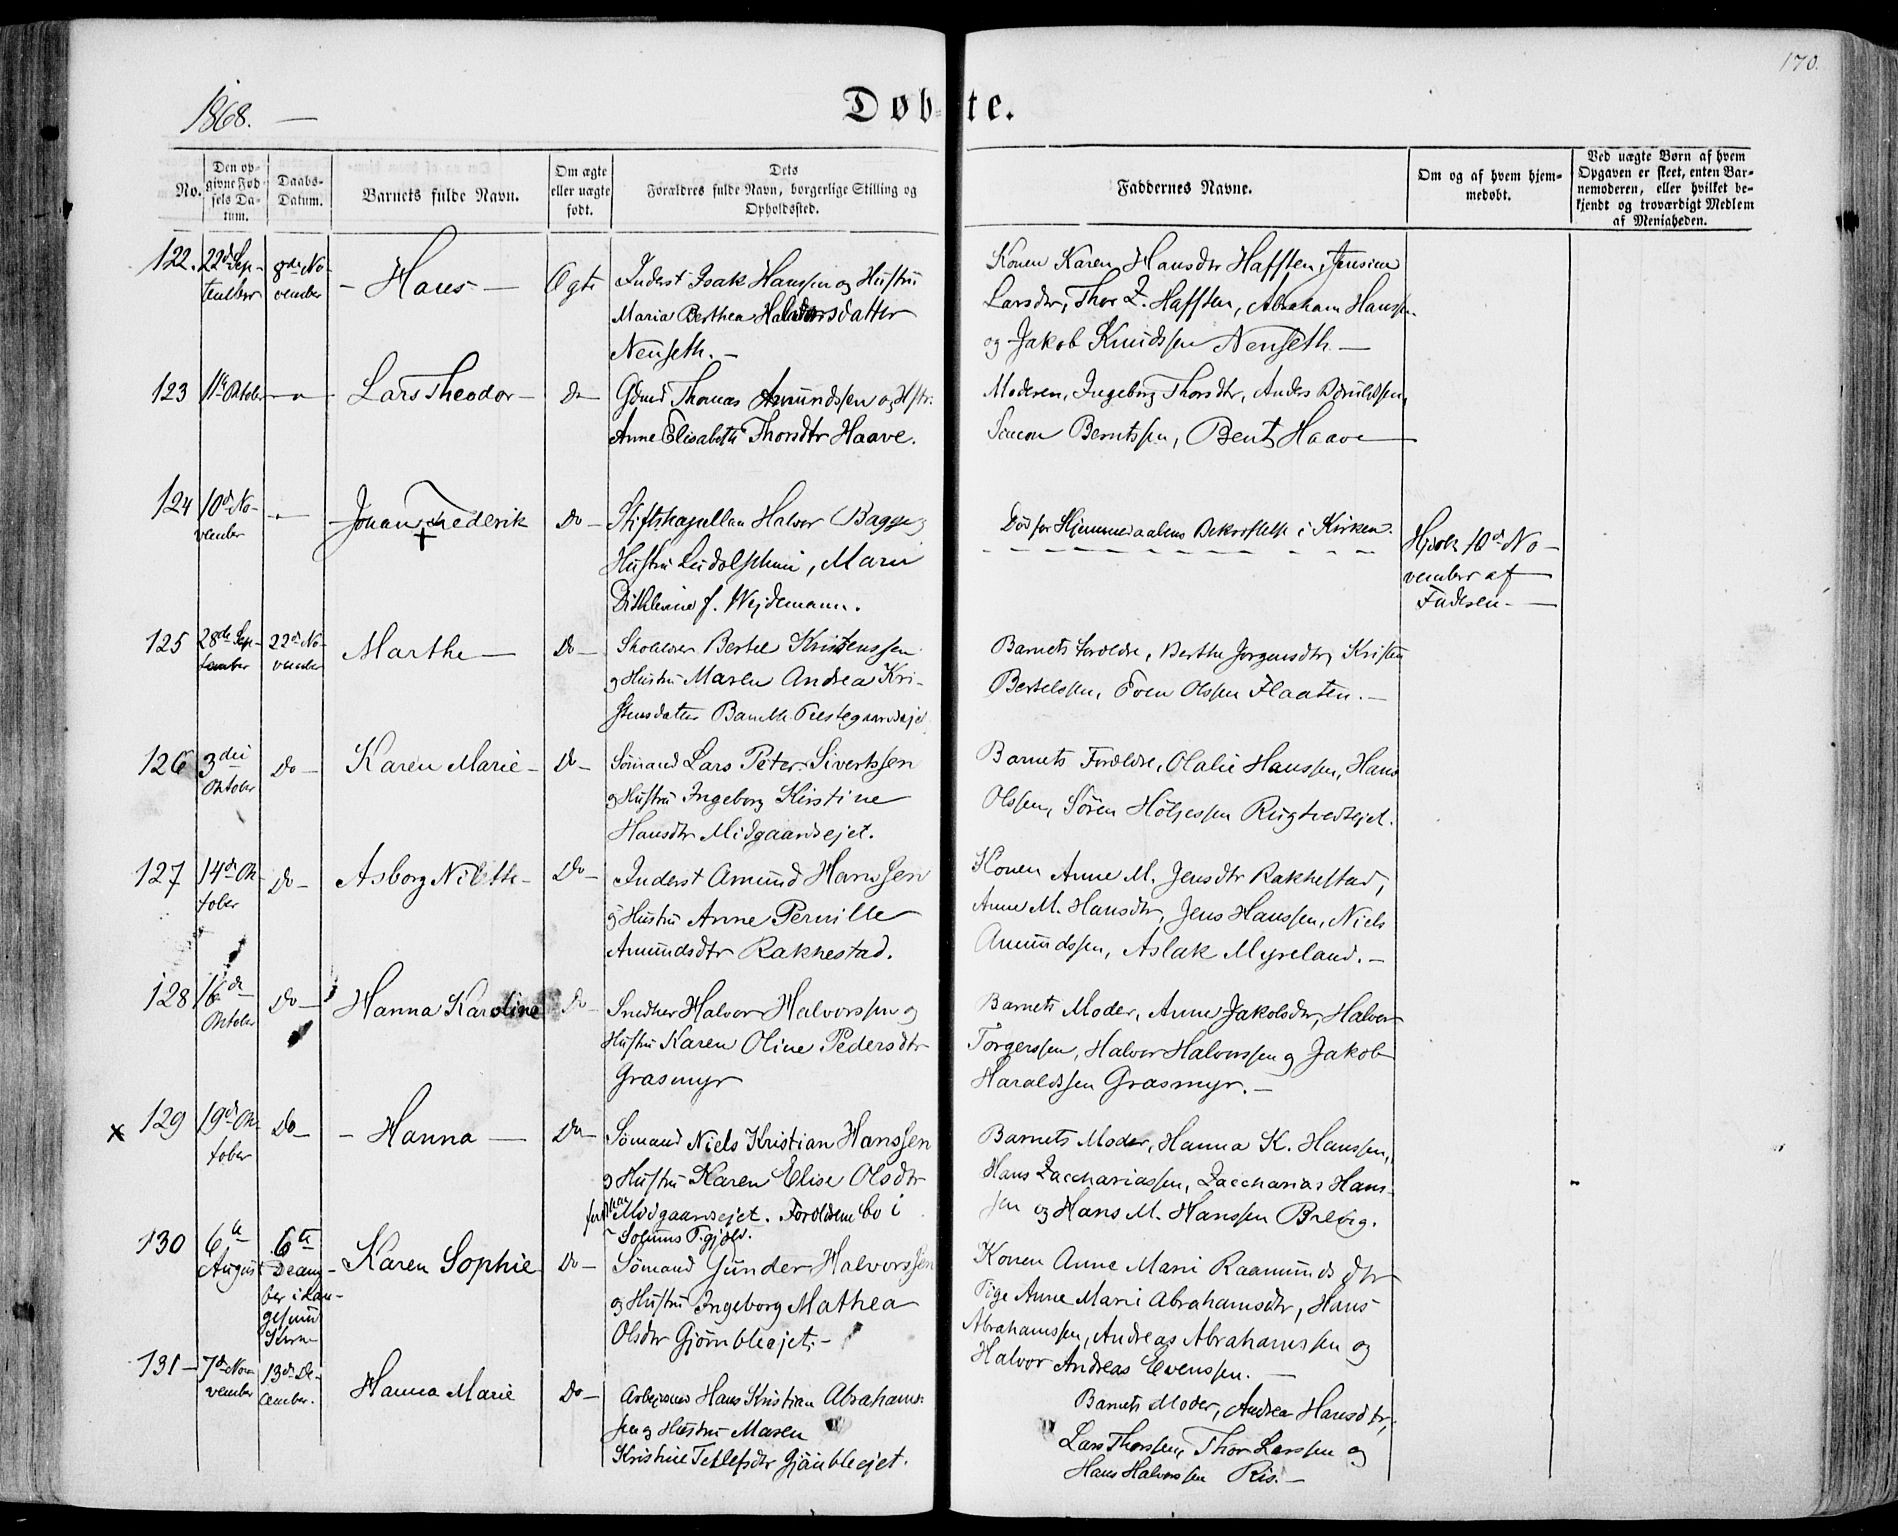 170.
1868. —
Døbte.
No.
Den op-
givne Fød-
sels Da-
tum.
Daabs-
Datum.
Barnets fulde Navn.
Om ægte
eller uægte
født.
Dets
Forældres fulde Navn, borgerlige Stilling og
Opholdssted.
Faddernes Navne.
Om og af hvem hjem-
medøbt.
Ved uægte Børn af hvem
Opgaven er skeet, enten Bar-
nemoderen, eller hvilket be-
kjendt og troværdigt Medlem
af Menigheden.
122. 22de Sep-
tember
8de No-
vember
- Hans -
Ægte
Inderst Isak Hanssen og Hustru
Maria Berthea Halvorsdatter
Nenseth. -
Konen Karen Hansdtr Hafsten, Jensine
Larsdtr, Thor L. Hafsten, Abraham Hanssen
og Jakob Knudssen Nenseth -
123 11te Oktober
Lars Theodor -
Do
Gdmd Thomas Amundssen og Hstr.
Anne Elisabeth Thorsdtr Haave.
Moderen, Ingeborg Thorsdtr, Anders
Simon Berntssen, Bent Haave
124 10de No-
vember
Johan Frederik
Do -
Stiftskapellan Halvor Bagge og
Hustru Ludolphine, Marie
Dithlevine f. Wejdemann.
Død før Hjemmedaabens Bekræftelse i Kirken.
Hjdøbt 10de No-
vember af
Faderen. -
125 28de Sep-
tember
22de No-
vember
Marthe -
Do -
Skolelærer Bertel Kristenssen
og Hustru Maren Andrea Kri-
stensdatter Bamble Præstegaardsejet
Barnets Forældre, Berthe Jørgensdtr, Kristen
Bertelssen, Even Olssen Flaaten. -
126 3die
Oktober
Do -
Karen Marie -
Do -
Sömand Lars Peter Sivertssen
og Hustru Ingeborg Kirstine
Hansdtr Midgaardsejet.
Barnets Forældre, Olalie Hanssen, Hans
Olssen, Søren Höljessen Rugtvedtejet.
127 14de Ok-
tober
Do -
Asborg Nilette -
Do -
Inderst Amund Hanssen
og Hustru Anne Pernille
Amundsdtr Rakkestad.
Konen Anne M. Jensdtr Rakkestad,
Anne M. Hansdtr, Jens Hanssen, Niels
Amundssen, Aslak Myreland. -
128 16de
Oktober
Do -
Hanna Karoline
Do -
Snedker Halvor Halvorssen og
Hustru Karen Oline Pedersdtr
Grasmyr
Barnets Moder, Anne Jakobsdtr, Halvor
Torgerssen, Halvor Halvorssen og Jakob
Haraldssen Grasmyr. -
x 129 19de Ok-
tober
Do -
- Hanna -
Do -
Sömand Niels Kristian Hanssen
og Hustru Karen Elise Olsdtr
Midgaardsejet. Forældrene bo i
Solums P.gjeld.
Barnets Moder, Hanna K. Hanssen,
Hans Zacchariassen, Zaccharias Hans-
sen og Hans M. Hanssen Brevig.
130 6te
August
6te
Decem-
ber i Lan-
gesund
Kirke
Karen Sophie
Do -
Sömand Gunder Halvorssen
og Hustru Ingeborg Mathea
Olsdtr Gjömleejet. -
Konen Anne Marie Raamunds dtr
Pige Anne Marie Abrahamsdtr, Hans
Abrahamssen, Andreas Abrahamssen og
Halvor Andreas Evenssen. -
131 - 7de Nov-
vember
13de De-
cember.
Hanna Marie
Do -
Arbejdsmd Hans Kristian Abrahams-
sen og Hustru Maren
Kristine Tetlefsdtr Gjömbleejet.
Barnets Moder, Andrea Hansdtr,
Lars Thorssen, Thor Larssen og
Hans Halvorssen Ris. -